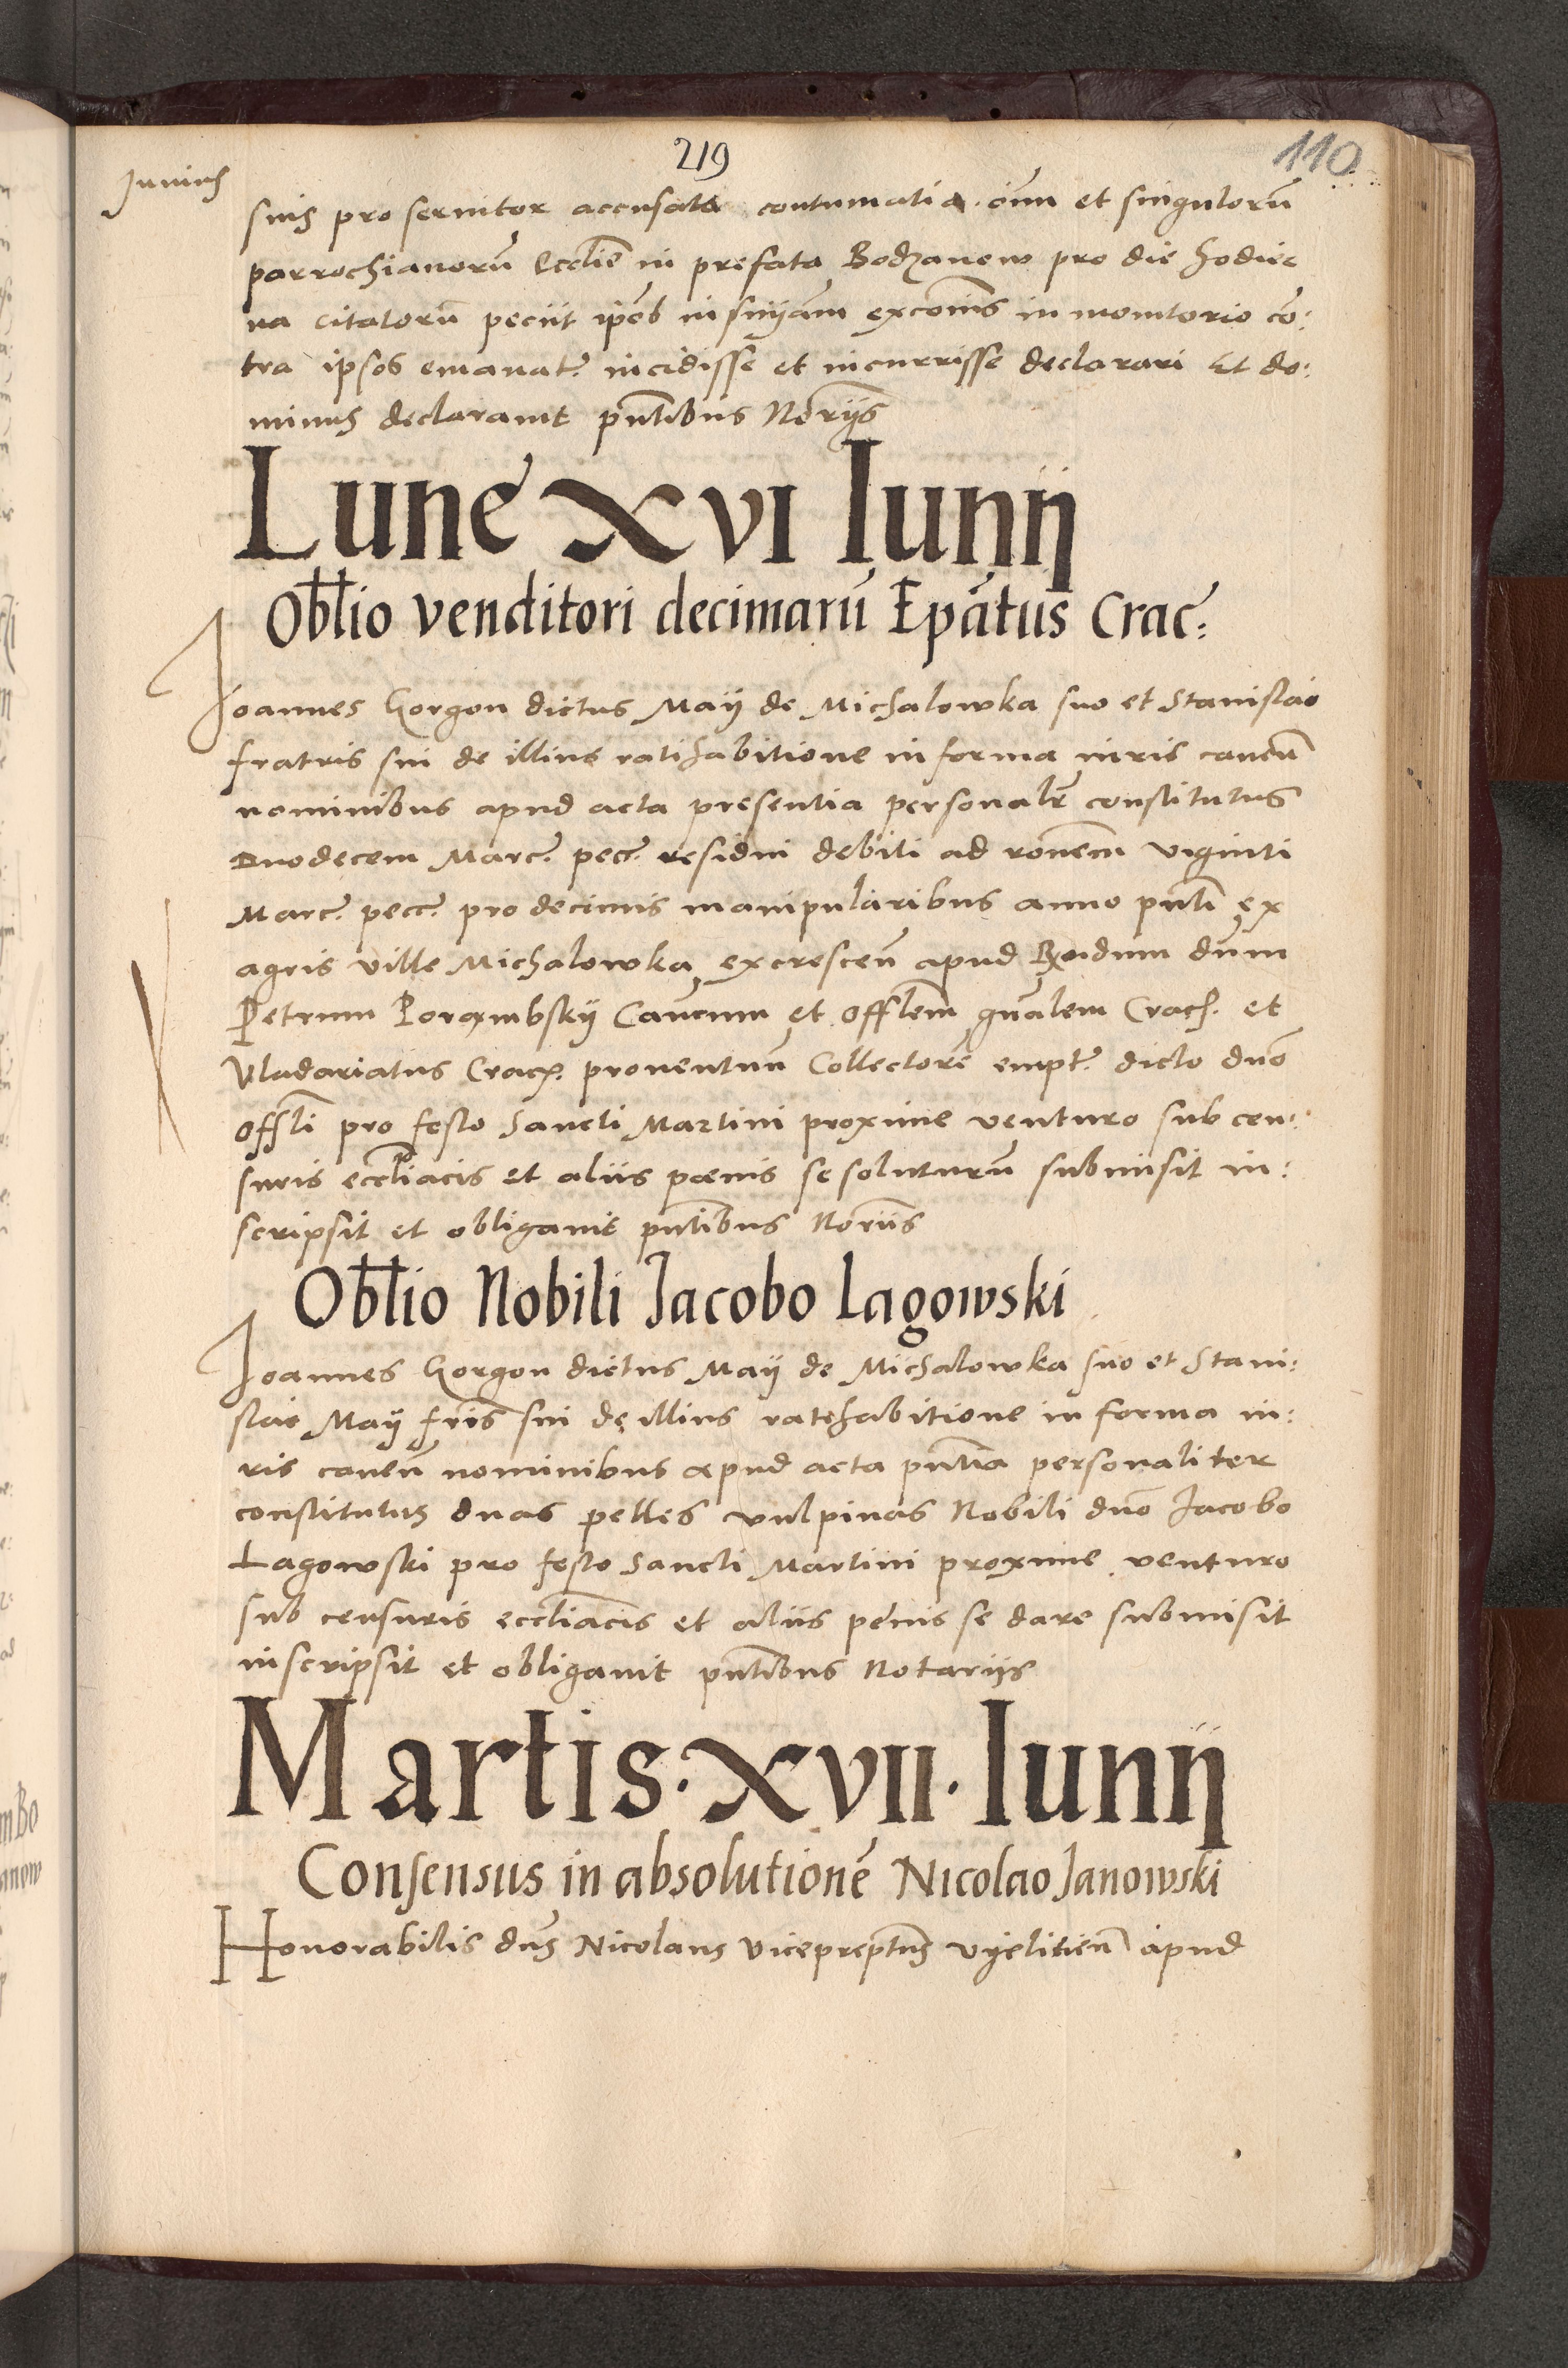 219
110
Junius
suus pro servitor accusata contumatia oīm et singulorū
parrochianorū Ecclīe in prefata Bodzanow pro die hodier
na citatorū peciit ipōs in snījam excōnis in monitorio cō:
tra ipsos emanat: incidisse et incurrisse declarari Et do:
minus declaravit pn̄tibus Norijs
Lune XVI Iunij
Oblīo venditori decimarū Epātus Crac:
Joannes Gorgon dictus Maij de Michalowka suo et Stanislai
fratris sui de illius ratihabitione in forma iuris caveñ
nominibus apud acta presentia personalr̄ constitutus
Duodecem Marc: pecc: residui debiti ad rōnem viginti
Marc: pecc: pro decimis manipularibus anno pn̄ti ex
agris ville Michalowka excresceñ apud Rndum dūm
Petrum Porąmbskij Cancum et Offlem gn̄alem Crac: et
Vladariatus Crac: proventuū Collectorē empt: dicto dnō
offli pro festo Sancti Martini proxime venturo sub cen:
suris eccliacis et aliis pœnis se soluturū submisit in:
scripsit et obligavit pn̄tibus Noriis
Oblīo Nobili Jacobo Lagowski
Joannes Gorgon dictus Maij de Michalowka suo et Stani:
slai Maij fris sui de illius ratehabitione in forma iu:
ris caveñ nominibus apud acta pn̄tia personaliter
constitutus duas pelles vulpinas Nobili dnō Jacobo
Lagowski pro festo Sancti Martini proxime venturo
sub censuris eccliacis et aliis penis se dare submisit
inscripsit et obligavit pn̄tibus Notarijs
Martis · XVII · Iunij
Consensus in absolutionē Nicolao Janowski
Honorabilis dn̄s Nicolaus viceprep̄tus Vyelicieñ apud